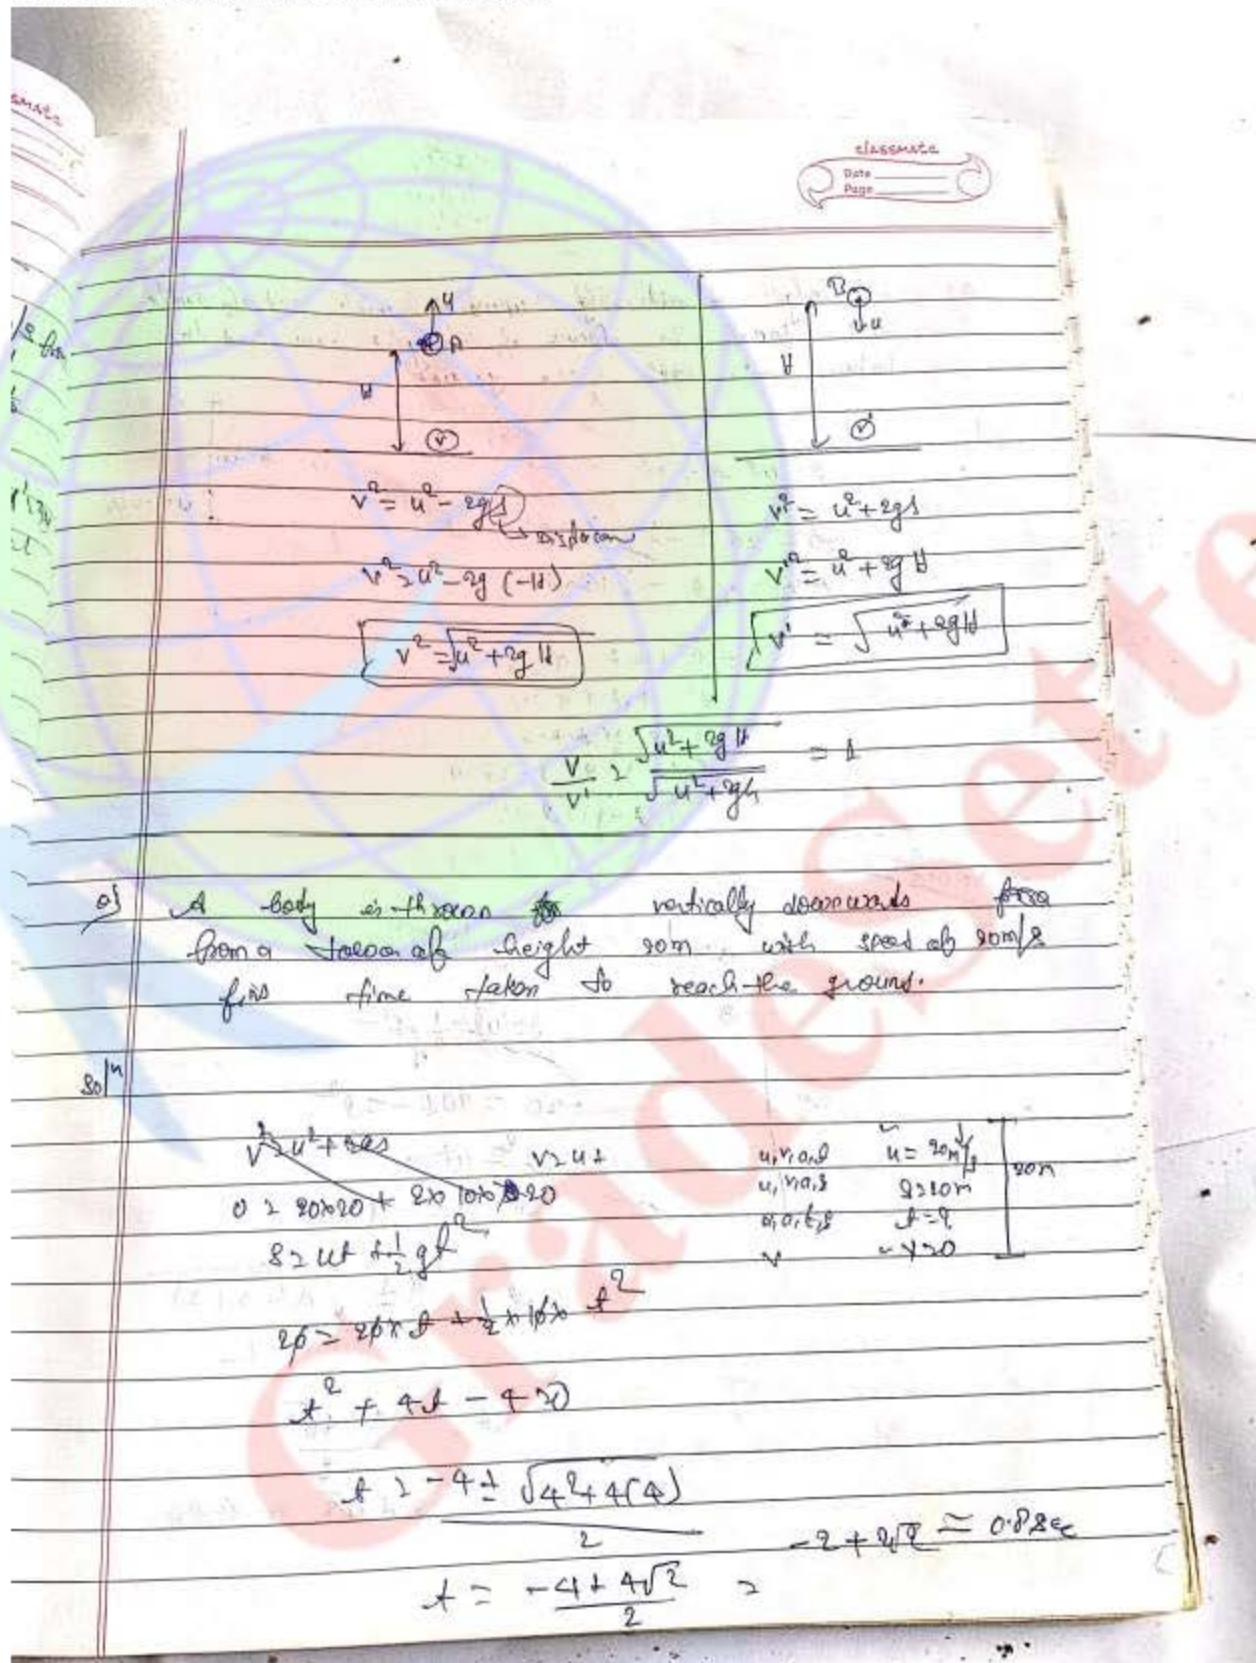 classmate
Date
Page
u
A
H
v
B
u
H
v'
v² = u² - 2gs
v² = u² - 2g (-H)
v² = √u² + 2gH
v'² = u² + 2gs
v'² = u² + 2gH
v' = √u² + 2gH
v/v' = √u² + 2gH / √u² + 2gh = 1
Q) A body is thrown vertically downwards
from a tower of height 20m with speed of 20m/s
find time taken to reach the ground.
Sol^n
v² = u² + 2as
0 = 20×20 + 2×10×20
S = ut + ½ gt²
20 = 20× t + ½ × 10× t²
t² + 4t - 4 = 0
t = -4 ± √4² + 4(4) / 2
t = -4 + 4√2 / 2 = -2 + 2√2 = 0.8 sec
u, v, a, s
u = 20m/s
20m
u, v, a, s
s = 20m
t = ?
v
v = 0
GradeSette